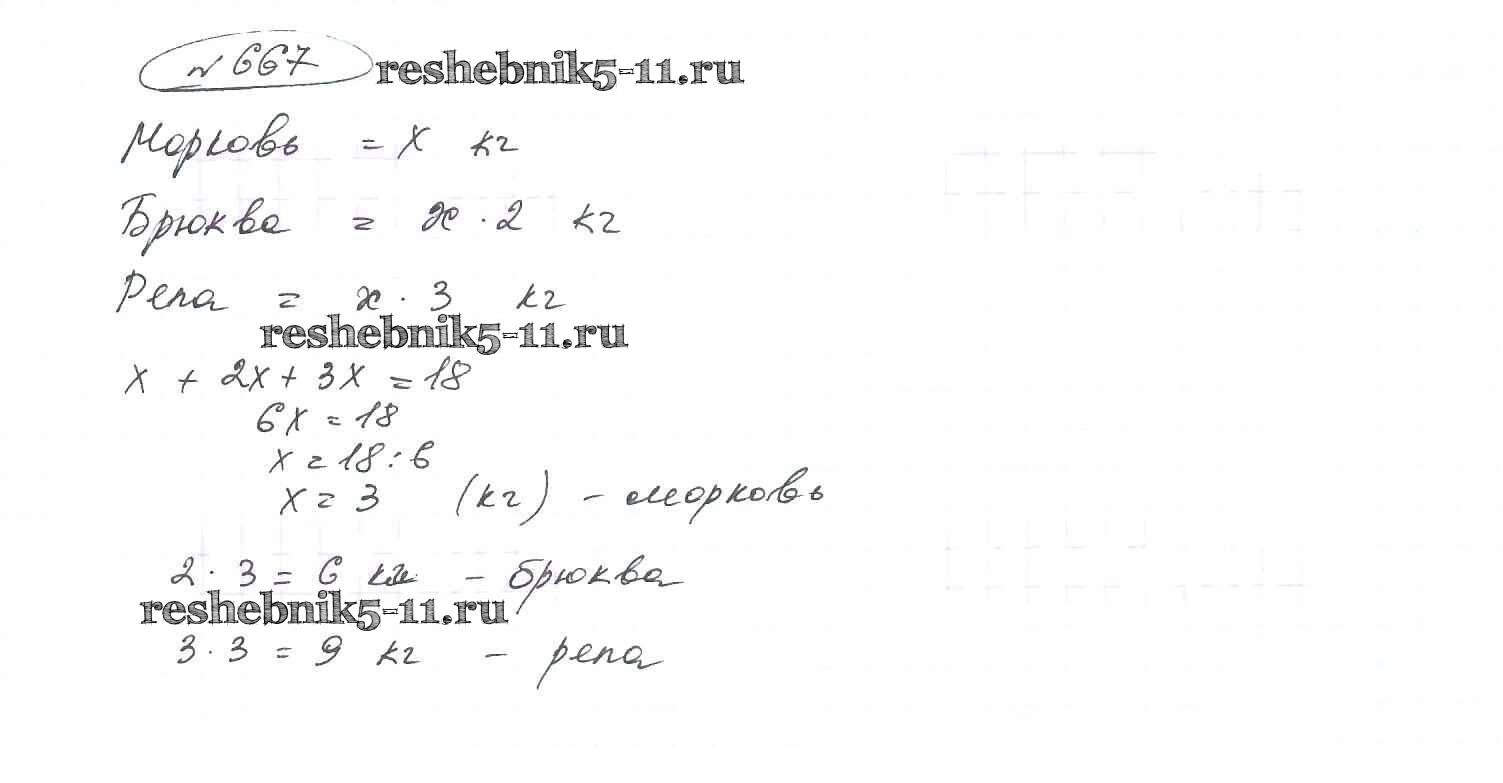 № 667 reshebnik5-11.ru
Морковь = x кг
Брюква = x · 2 кг
Репа = x · 3 кг
reshebnik5-11.ru
x + 2x + 3x = 18
6x = 18
x = 18 : 6
x = 3 (кг) - морковь
2 · 3 = 6 кг - брюква
reshebnik5-11.ru
3 · 3 = 9 кг - репа